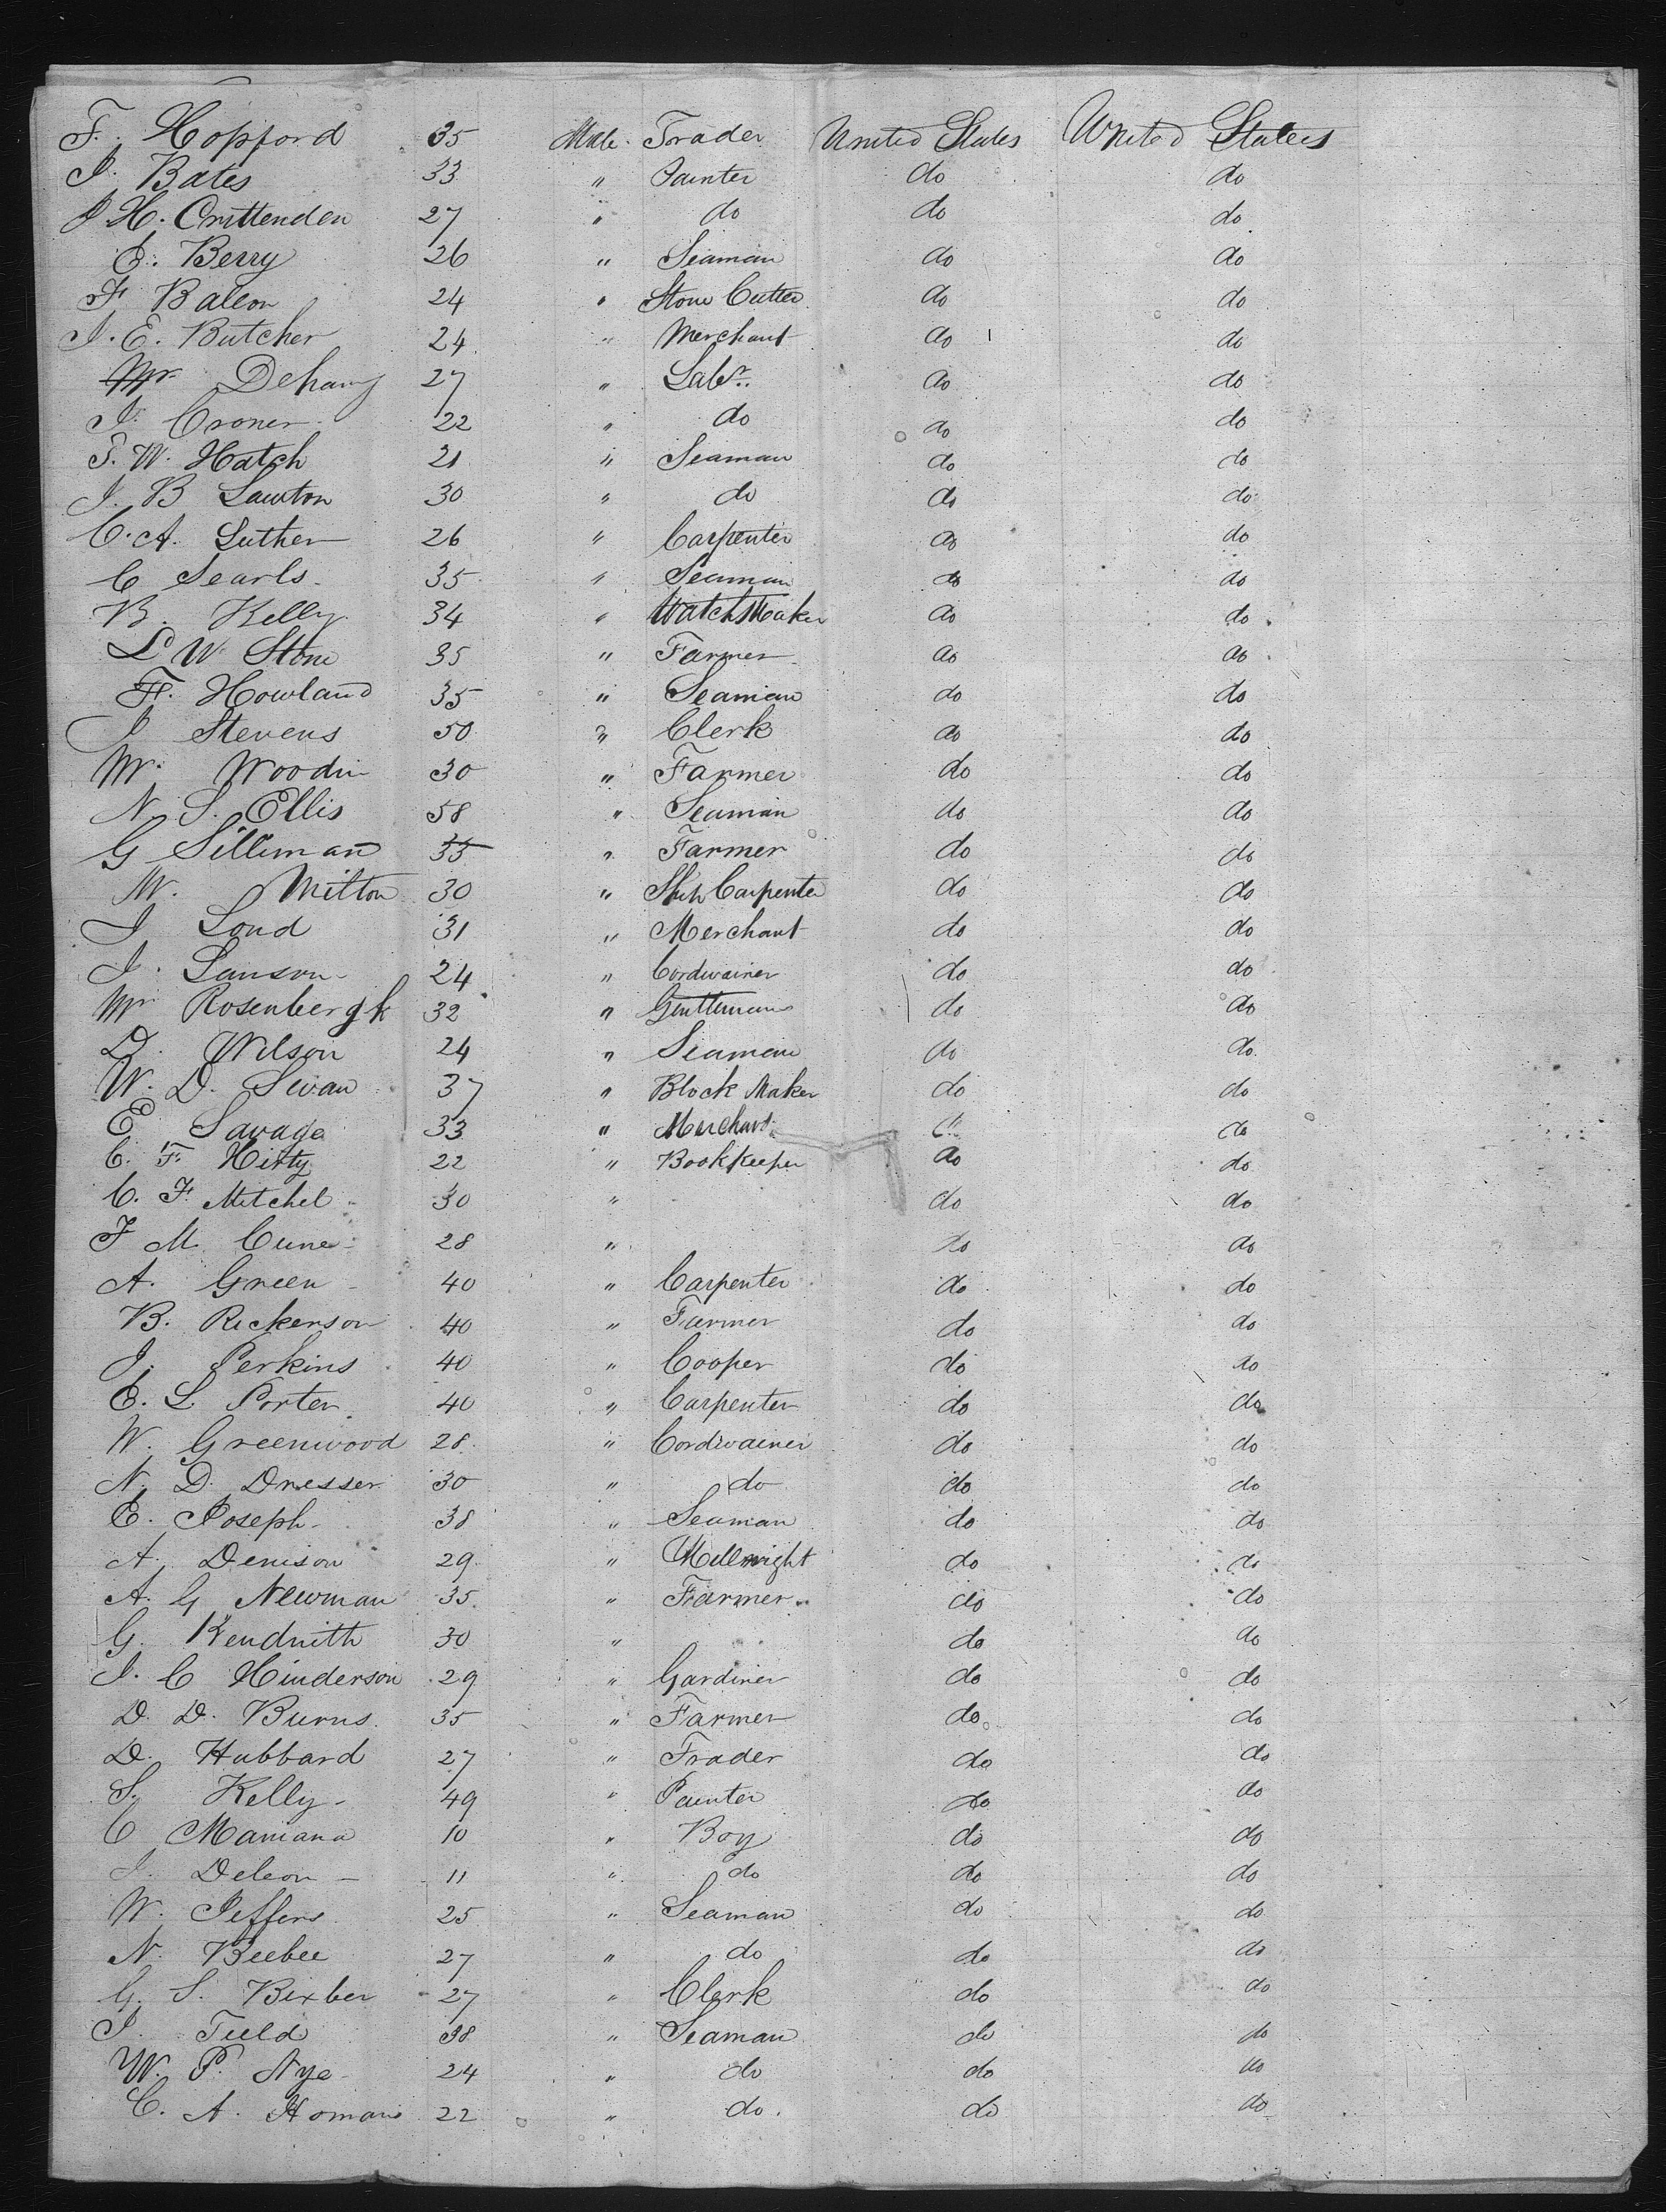 F. Hopford 35 Male Trader United States United States
J. Bates 33 " Painter do do
J H. Crittenden 27 " do do do
E. Berry 26 " Seaman do do
F Balcon 24 " Stone Cutter do do
J. E. Butcher 24 " Merchant do do
Mr 27 " Labr. do do
J. Croner 22 " do do do
T. W. Hatch 21 " Seaman do do
J. B Lawton 30 " do do do
C. A. Luther 26 " Carpenter do do
C Searls 35 " Seaman do do
B. Kelly 34 " Watch Maker do do
L W Stone 35 " Farmer do do
F. Howland 35 " Seaman do do
J Stevens 50 " Clerk do do
W. Woodin 30 " Farmer do do
N. S. Ellis 58 " Seaman do do
G Silliman 35 " Farmer do do
W. Milton 30 " Ship Carpenter do do
J Lond 31 " Merchant do do
J. Lanson 24 " Cordwainer do do
Mr Rosenbergk 32 " Gentleman do do
D. Wilson 24 " Seaman do do
W. D. Swan 37 " Block Maker do do
E Savage 33 " Merchant do do
C. F. Hitty 22 " Bookkeeper do do
C. F. Mitchel 30 " do do
F M. Cune 28 " do do
A. Green 40 " Carpenter do do
B. Rickerson 40 " Farmer do do
J. Perkins 40 " Cooper do do
E. L. Porter 40 " Carpenter do do
W. Greenwood 28 " Cordwainer do do
N. D. Dresser 30 " do do do
E. Joseph 38 " Seaman do do
A. Denison 29 " Millwright do do
A. G Newman 35 " Farmer do do
G. Kendrith 30 " do do
J. C Hinderson 29 " Gardiner do do
D. D. Burns 35 " Farmer do do
D. Hubbard 27 " Trader do do
S. Kelly 49 " Painter do do
C Maniana 10 " Boy do do
J. Deleon 11 " do do do
W. Jeffers 25 " Seaman do do
N. Beebee 27 " do do do
G. S. Bixber 27 " Clerk do do
J. Field 38 " Seaman do do
W. P. Nye 24 " do do do
C. A. Homans 22 " do do do